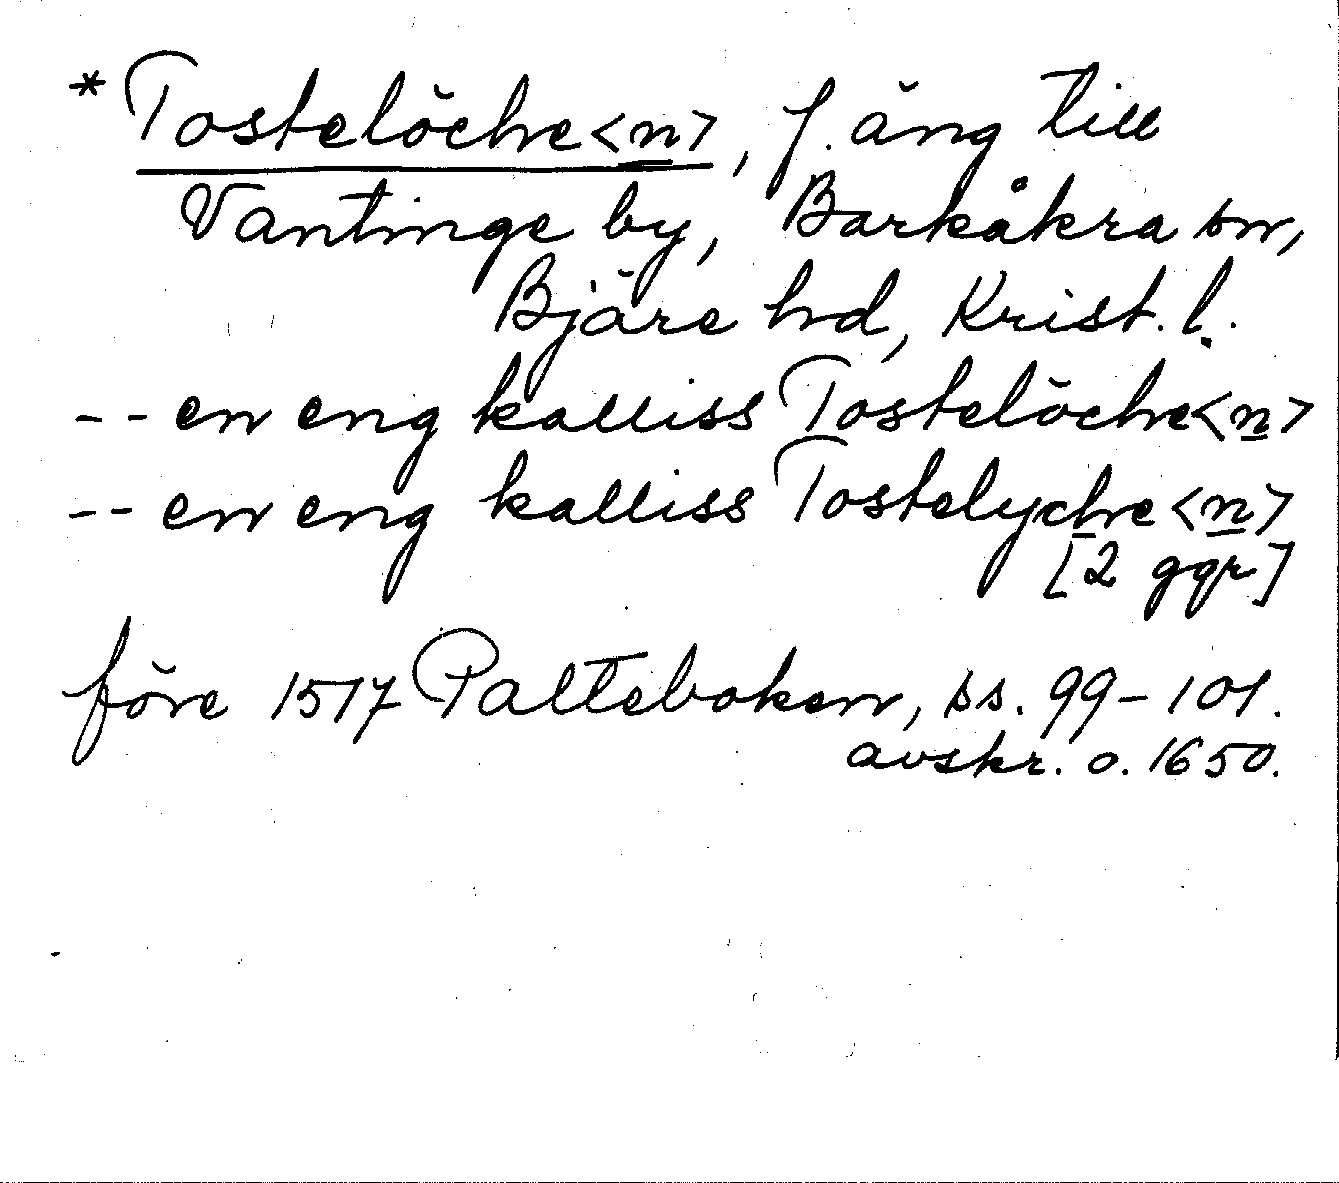 *Tostelöche<n>, f. äng till
Vantinge by, Barkåkra sn,
Bjäre hd, Krist. l.
-- en eng kalliss Tostelöche<n>
-- en eng kalliss Tostelyche<n>
[2 ggr]
före 1517 Palteboken, ss. 99-101.
avskr. o. 1650.